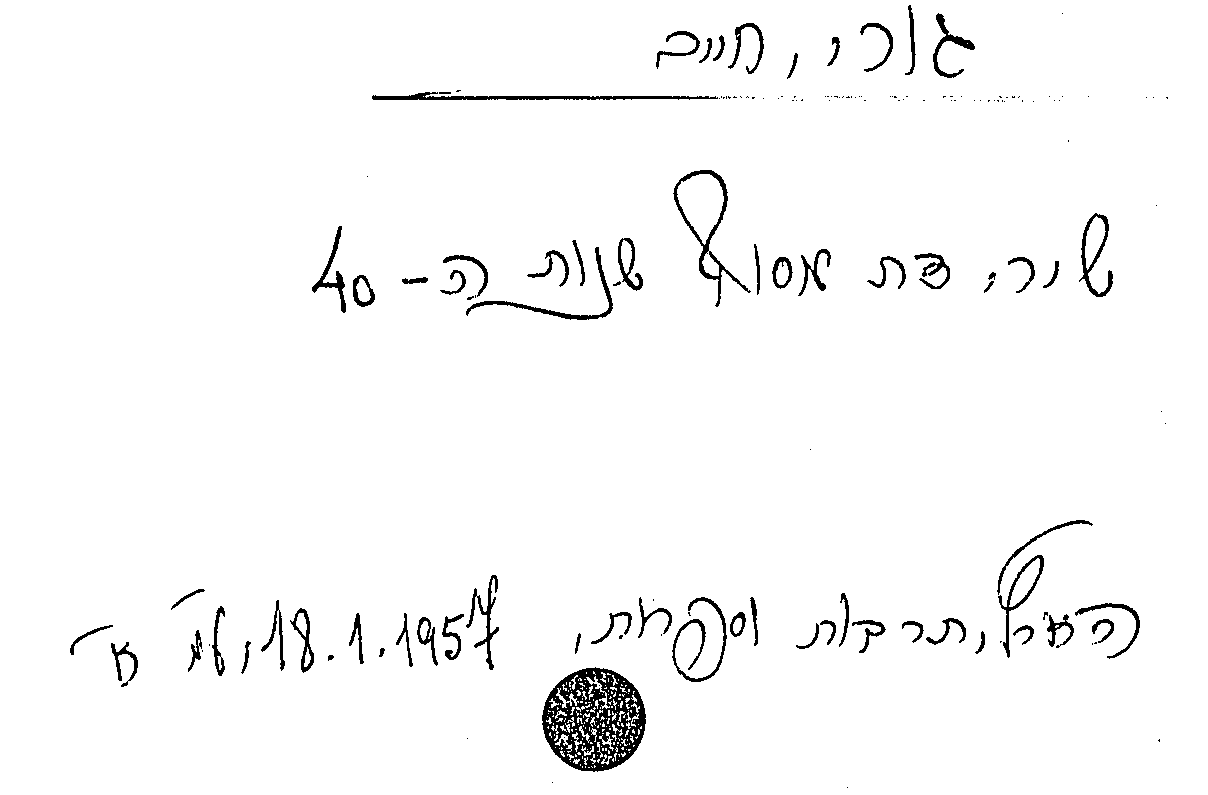 גורי, חיים
שיר, מסוף שנות ה-40
הארץ, תרבות וספרות, 18.1.1957, עמ' א'